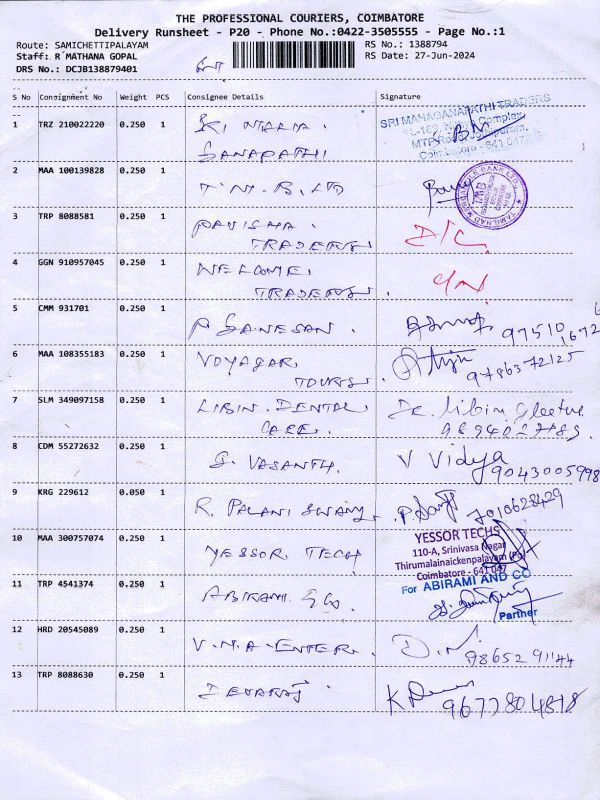 THE PROFESSIONAL COURIERS, COIMBATORE
Delivery Runsheet - P20 - Phone No.:0422-3505555 - Page No.:1
Route: SAMICHETTIPALAYAM
RS No.: 1388794
Staff: R MATHANA GOPAL
RS Date: 27-Jun-2024
DRS No.: DCJB138879401
S No Consignment No Weight PCS Consignee Details Signature
1 TRZ 210022220 0.250 1
GANAPATHI
SRI MAHAGANAPATHI TRADERS
Complex,
MTP Road,
Coimbatore - 641
2 MAA 100139828 0.250 1 T.M.B. LTD
TAMILNAD MERCANTILE BANK LTD.
3 TRP 8088581 0.250 1 PAVISHA.
TRADERS. D/C
4 GGN 910957045 0.250 1 WELCOME.
TRADERS.
5 CMM 931701 0.250 1 P GANESAN. 97510
1672
6 MAA 108355183 0.250 1 VOYAGAR.
TOURS. 9786372125
7 SLM 349097158 0.250 1 LIBIN. DENTAL Dr. Libin
CARE.
8 CDM 55272632 0.250 1 S. VASANTH. V Vidya
9043005998
9 KRG 229612 0.050 1 R. PALANI SWAMY. 7010628429
10 MAA 300757074 0.250 1 YESSOR TECH
YESSOR TECHS
110-A, Srinivasa Nagar
Thirumalainaickenpalayam (Po)
Coimbatore - 641 047
11 TRP 4541374 0.250 1 ABIRAMI. & Co.
For ABIRAMI AND CO
Partner
12 HRD 20545089 0.250 1 V.M.A. ENTER. 9865291144
13 TRP 8088630 0.250 1 DEVARAJ. 9677804818